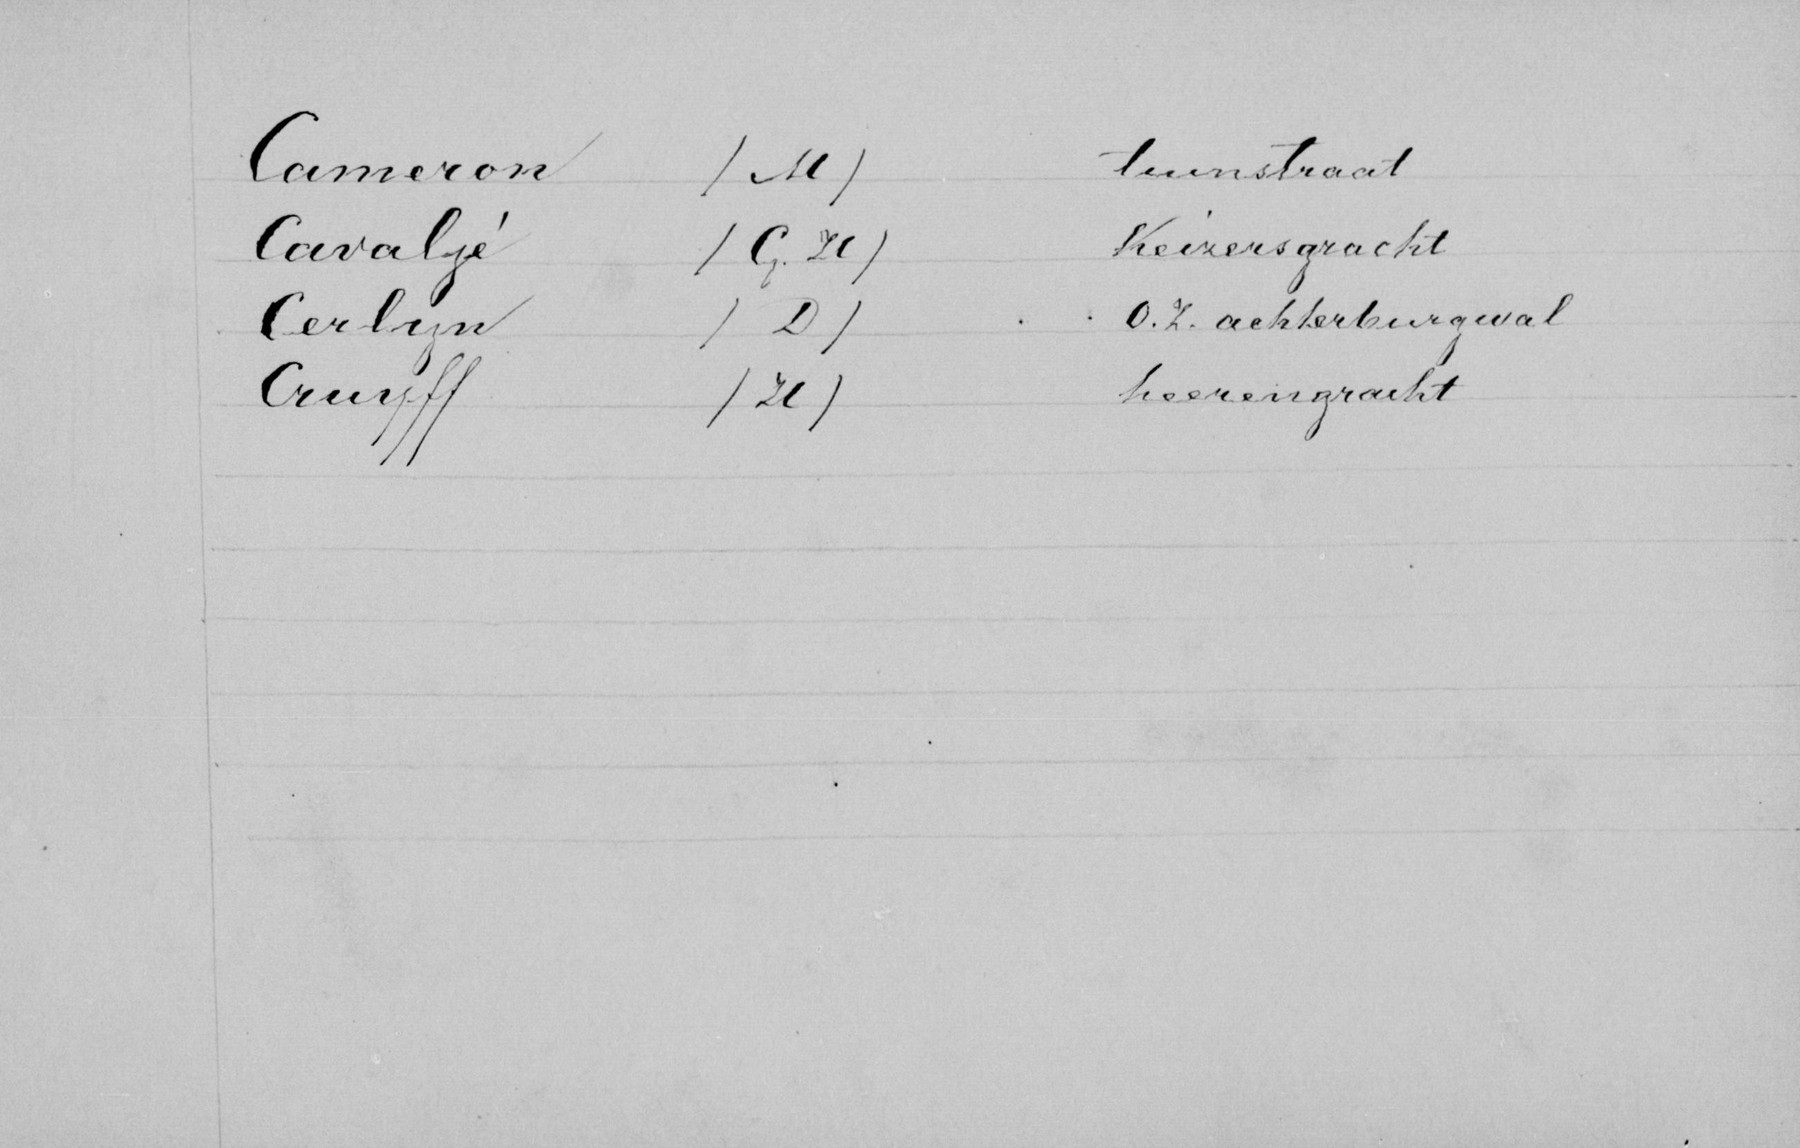 Cameron (M) tuinstraat
Cavaljé (G. H) Keizersgracht
Cerlyn (D) O.Z. achterburgwal
Cruyff (H) heerengracht